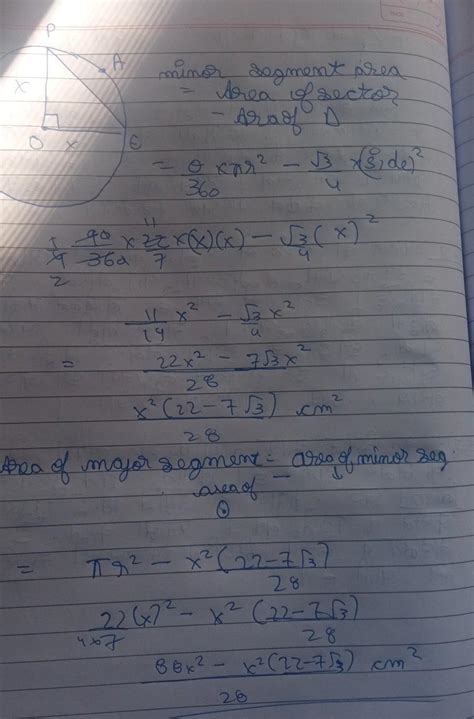 P
A
x
O
x
E
minor segment area
= Area of sector
- Ara of Δ
= θ/360 × πr² - √3/4 × (side)²
1/4 90/360 × 22/7 × (x)(x) - √3/4 (x)²
2
11
11/14 x² - √3/4 x²
= 22x² - 7√3x² / 28
x² (22 - 7√3) / 28 cm²
Area of major segment = area of minor seg.
area of - ↓
⊙
= πr² - x² (22 - 7√3) / 28
22(x)² / 4×7 - x² (22 - 7√3) / 28
88x² - x² (22 - 7√3) / 28 cm²